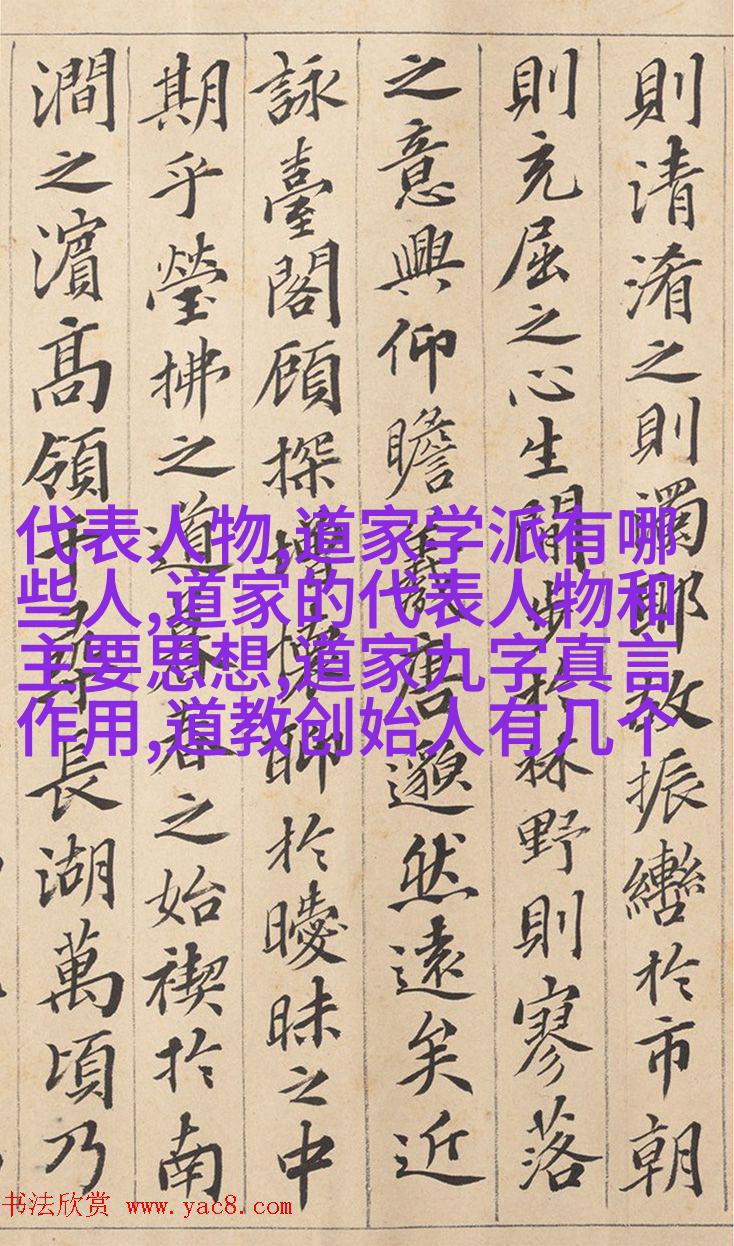 則清淆之則濁耶故振轡於市朝
則充屈之心生閒步於林野則寥落
之意興仰瞻羲唐邈然遠矣近
詠臺閣顧探增懷聊於曖昧之中
期乎瑩拂之道暮春之始禊於南
澗之濱高領千尋長湖萬頃乃
代表人物,道家学派有哪
些人,道家的代表人物和
主要思想,道家九字真言
作用,道教创始人有几个
书法欣赏 www.yac8.com